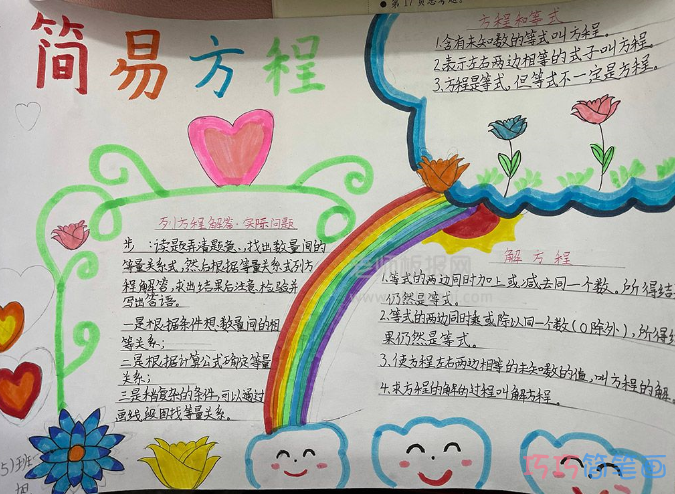 第17页思考题。
简易方程
方程和等式
1.含有未知数的等式叫方程。
2.表示左右两边相等的式子叫方程。
3.方程是等式,但等式不一定是方程。
列方程解答实际问题
步:读题弄清题意、找出数量间的
等量关系式,然后根据等量关系式列方
程解答,求出结果后注意检验并
写出答语。
一是根据条件想,数量间的相
等关系;
二是根据计算公式确定等量
关系;
三是稍复杂的条件,可以通过
画线段图找等量关系。
解方程
1.等式的两边同时加上或减去同一个数。所得结
仍然是等式。
2.等式的两边同时乘或除以同一个数(0除外),所得结
果仍然是等式。
3.使方程左右两边相等的未知数的值,叫方程的解。
4.求方程的解的过程叫解方程。
老师板报网
5)班
巧巧简笔画